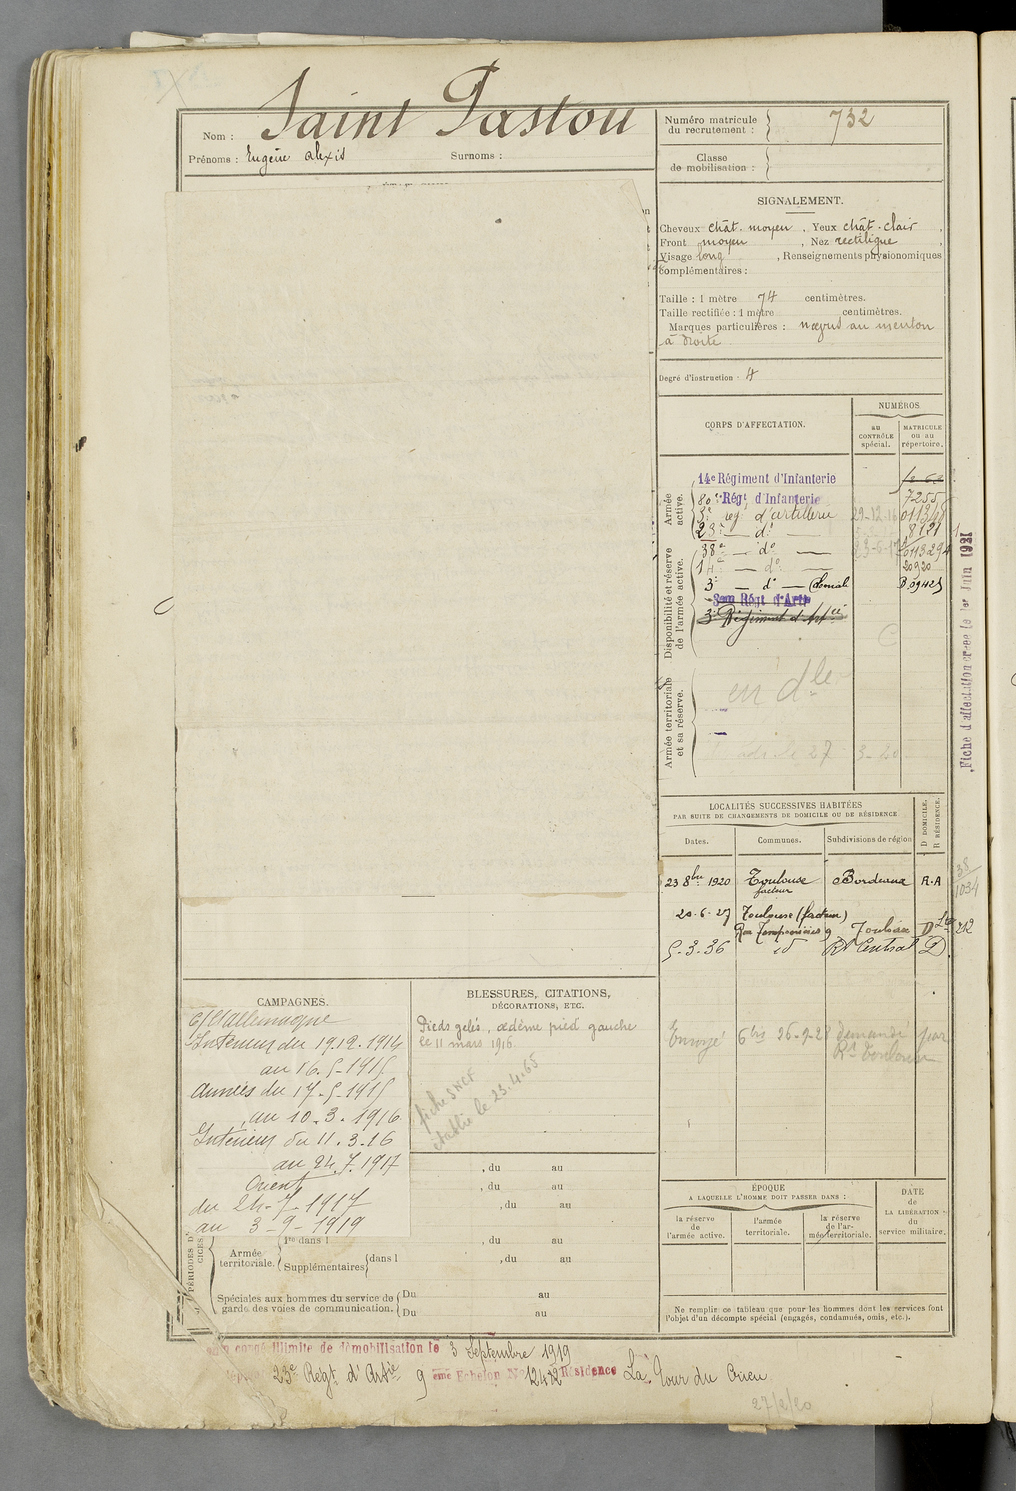 Nom : Saint Pastou
Prénoms : Eugène alexis Surnoms :
Numéro matricule du recrutement : 732
Classe de mobilisation :
SIGNALEMENT.
Cheveux chât. moyen , Yeux chât. clair ,
Front moyen , Nez rectiligne ,
Visage long , Renseignements physionomiques
complémentaires :
Taille : 1 mètre 74 centimètres.
Taille rectifiée : 1 mètre centimètres.
Marques particulières : nœvus au menton
à droite
Degré d'instruction . 4
CORPS D'AFFECTATION.
NUMÉROS
au CONTRÔLE spécial.
MATRICULE ou au répertoire.
Armée active.
14e Régiment d'Infanterie
80e Régt d'Infanterie 7255
5e reg. d'artillerie 29-12-16
23e — do — 8121
Disponibilité et réserve de l'armée active.
38e — do —
14e — do — 20920
3e — do —
3em Régt d'Artie
3e Régiment d'Artie
Armée territoriale et sa réserve.
en dle
Fiche d'affectation créée le 1er Juin 1921
LOCALITÉS SUCCESSIVES HABITÉES
PAR SUITE DE CHANGEMENTS DE DOMICILE OU DE RÉSIDENCE
Dates. Communes. Subdivisions de région
D DOMICILE. R RÉSIDENCE.
23 8bre 1920 Toulouse Bordeaux R.A
facteur
38/1034
20-6-27 Toulouse (facteur)
Toulouse D 212
5-3-36 id Rt Central D
Envoyé 6 bis 26-9-28 demandé par
Rt Toulouse
CAMPAGNES.
C/ l'allemagne
Intérieur du 19.12.1914
au 16-5-1915
Armées du 17-5-1915
au 10.3.1916
Intérieur du 11.3.16
au 24.7.1917
Orient
du 24-7-1917
au 3-9-1919
BLESSURES, CITATIONS,
DÉCORATIONS, ETC.
Pieds gelés, œdème pied gauche
le 11 mars 1916.
fiche SNCF
établie le 23.4.65
, du au
, du au
, du au
Armée territoriale. 1re dans l , du au
Supplémentaires dans l , du au
Spéciales aux hommes du service de garde des voies de communication. Du au
Du au
ÉPOQUE
A LAQUELLE L'HOMME DOIT PASSER DANS :
la réserve de l'armée active.
l'armée territoriale.
la réserve de l'armée territoriale.
DATE de LA LIBÉRATION du service militaire.
Ne remplir ce tableau que pour les hommes dont les services font
l'objet d'un décompte spécial (engagés, condamnés, omis, etc.).
congé illimité de démobilisation le 3 Septembre 1919
23e Régt d'Artie 9 eme Echelon No 12422 Résidence La Tour du Crieu
27/2/20